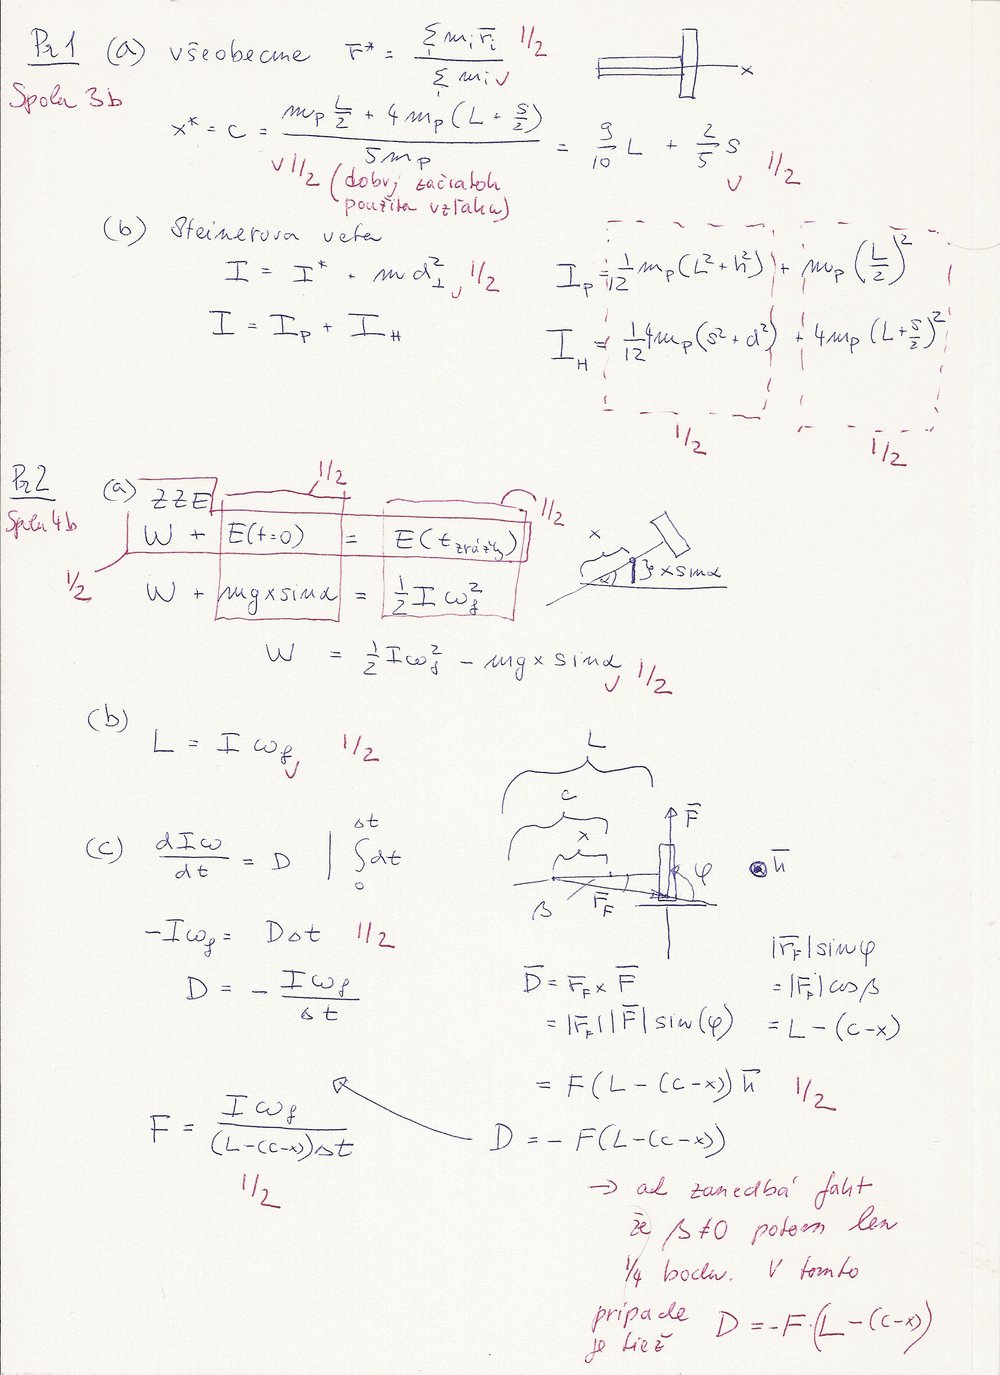 Pr 1 (a) všeobecne r̄* = Σ mᵢ r̄ᵢ / Σ mᵢ 1/2
Spolu 3b
x
x* = c = (m_P L/2 + 4 m_P (L + s/2)) / 5 m_P = 9/10 L + 2/5 s 1/2
√ 1/2 (dobrý začiatok
použitia vzťahu)
(b) Steinerova veta
I = I* + m d⊥² 1/2
I = I_P + I_H
I_P = 1/12 m_P (L² + h²) + m_P (L/2)²
I_H = 1/12 4 m_P (s² + d²) + 4 m_P (L + s/2)²
1/2 1/2
Pr 2
Spolu 4b
(a) ZZE 1/2 1/2
W + E(t=0) = E(t zrážky)
1/2
W + mgx sin α = 1/2 I ω_f²
x
α
x sin α
W = 1/2 I ω_f² − mgx sin α √ 1/2
(b)
L = I ω_f √ 1/2
L
c
x
F̄
n̄
φ
β
r̄_F
(c) dIω/dt = D | ∫₀^Δt dt
−Iω_f = DΔt 1/2
D = − Iω_f / Δt
D̄ = r̄_F × F̄
= |r̄_F| |F̄| sin(φ)
|r̄_F| sin φ
= |r̄_F| cos β
= L − (c−x)
= F(L − (c−x)) n̄ 1/2
F = Iω_f / (L−(c−x))Δt
1/2
D = − F(L−(c−x))
→ ak zanedbá fakt
že β ≠ 0 potom len
1/4 bodu. V tomto
prípade
je tiež D = −F·(L−(c−x))